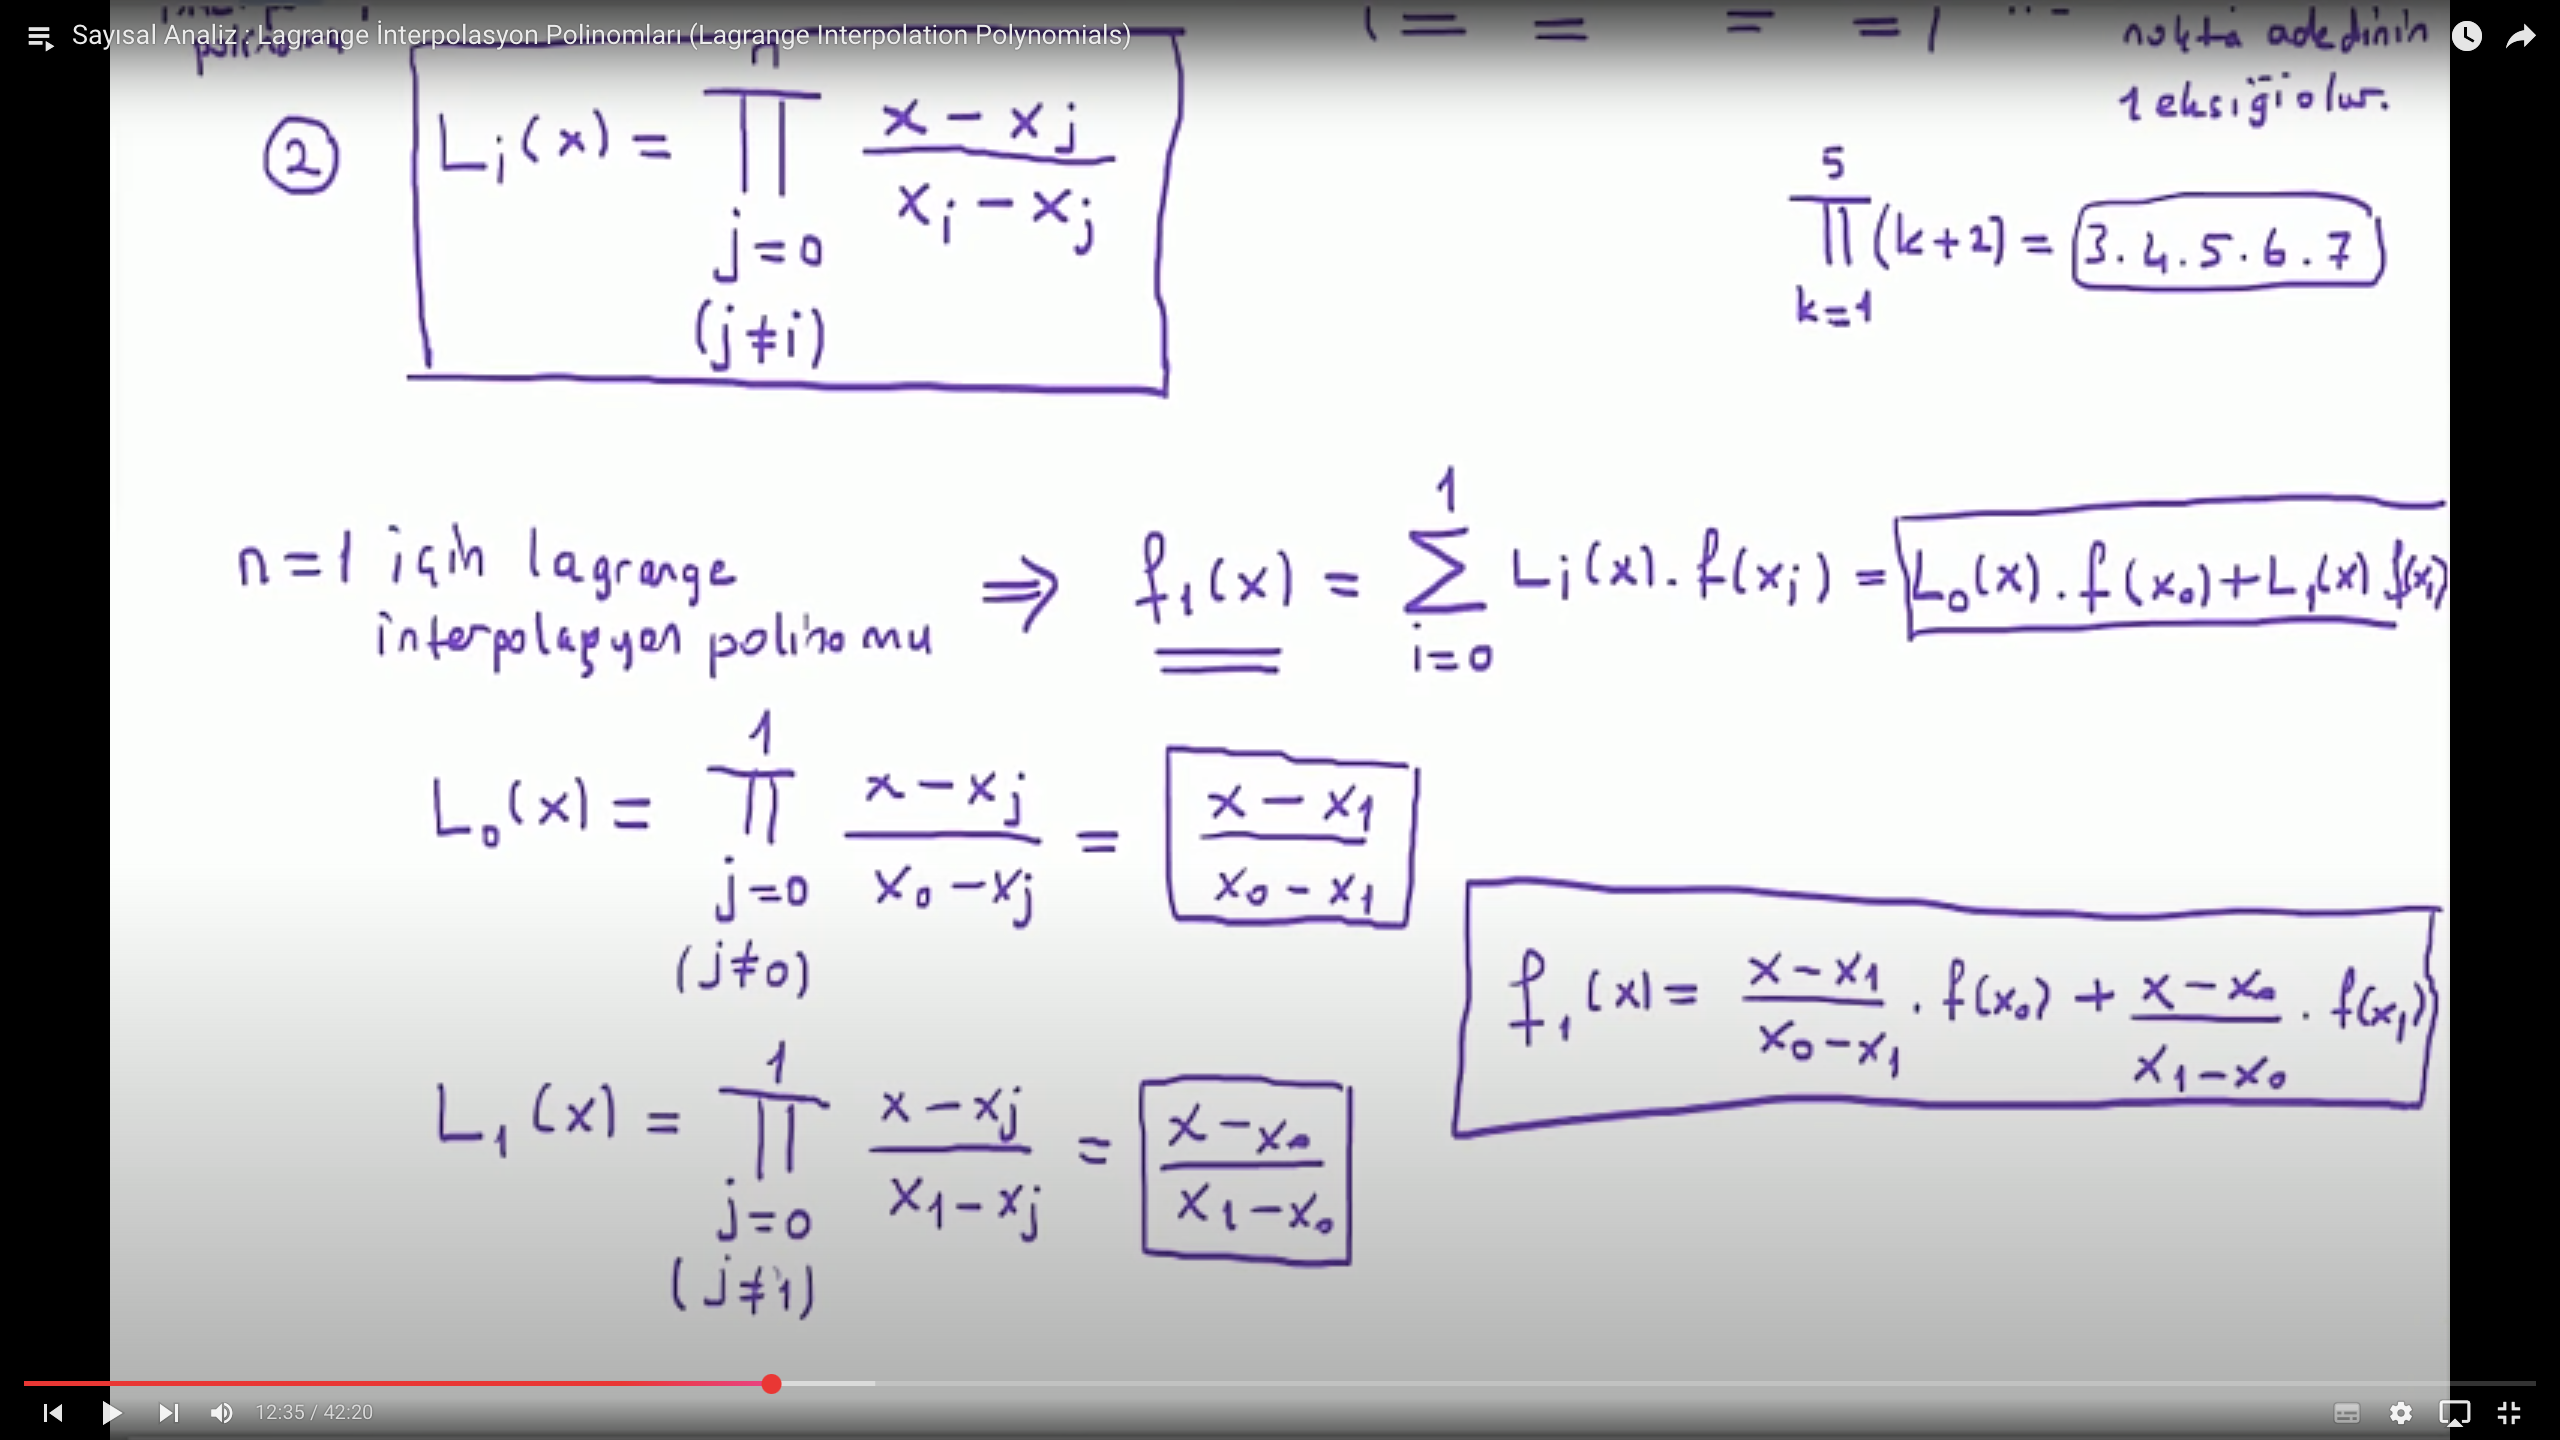 Sayısal Analiz : Lagrange İnterpolasyon Polinomları (Lagrange Interpolation Polynomials)
nokta adedinin
1 eksiği olur.
② Lᵢ(x) = ∏ⁿ j=0 (j≠i) (x - xⱼ)/(xᵢ - xⱼ)
∏⁵ k=1 (k+2) = 3.4.5.6.7
n=1 için lagrange
interpolasyon polinomu ⇒ f₁(x) = ∑¹ i=0 Lᵢ(x).f(xᵢ) = L₀(x).f(x₀)+L₁(x).f(x₁)
L₀(x) = ∏¹ j=0 (j≠0) (x - xⱼ)/(x₀ - xⱼ) = (x - x₁)/(x₀ - x₁)
f₁(x) = (x - x₁)/(x₀ - x₁) . f(x₀) + (x - x₀)/(x₁ - x₀) . f(x₁)
L₁(x) = ∏¹ j=0 (j≠1) (x - xⱼ)/(x₁ - xⱼ) = (x - x₀)/(x₁ - x₀)
12:35 / 42:20